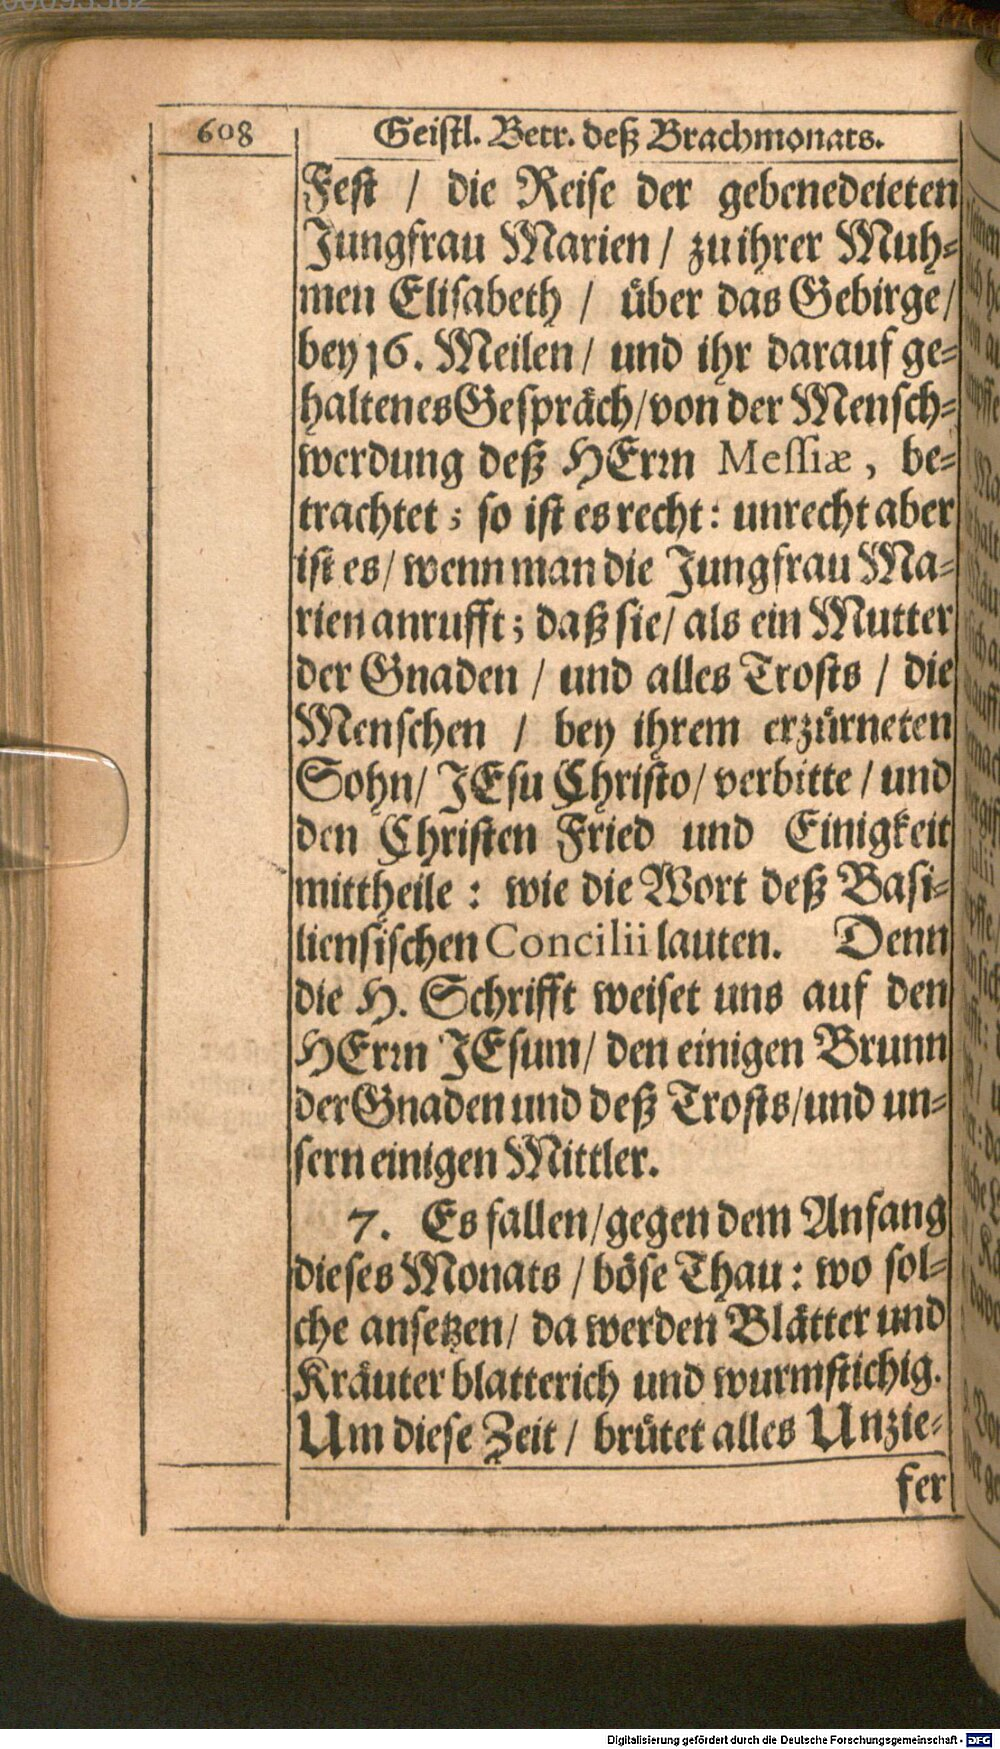 608
Geistl. Betr. deß Brachmonats.
Fest / die Reise der gebenedeieten
Jungfrau Marien / zu ihrer Muh-
men Elisabeth / über das Gebirge /
bey 16. Meilen / und ihr darauf ge-
haltenes Gespräch / von der Mensch-
werdung deß HErrn Messiæ, be-
trachtet; so ist es recht: unrecht aber
ist es / wenn man die Jungfrau Ma-
rien anrufft; daß sie / als ein Mutter
der Gnaden / und alles Trosts / die
Menschen / bey ihrem erzürneten
Sohn / JEsu Christo / verbitte / und
den Christen Fried und Einigkeit
mittheile: wie die Wort deß Basi-
liensischen Concilii lauten. Denn
die H. Schrifft weiset uns auf den
HErrn JEsum / den einigen Brunn
der Gnaden und deß Trosts / und un-
sern einigen Mittler.
7. Es fallen / gegen dem Anfang
dieses Monats / böse Thau: wo sol-
che ansetzen / da werden Blätter und
Kräuter blatterich und wurmstichig.
Um diese Zeit / brütet alles Unzie-
fer
Digitalisierung gefördert durch die Deutsche Forschungsgemeinschaft - DFG